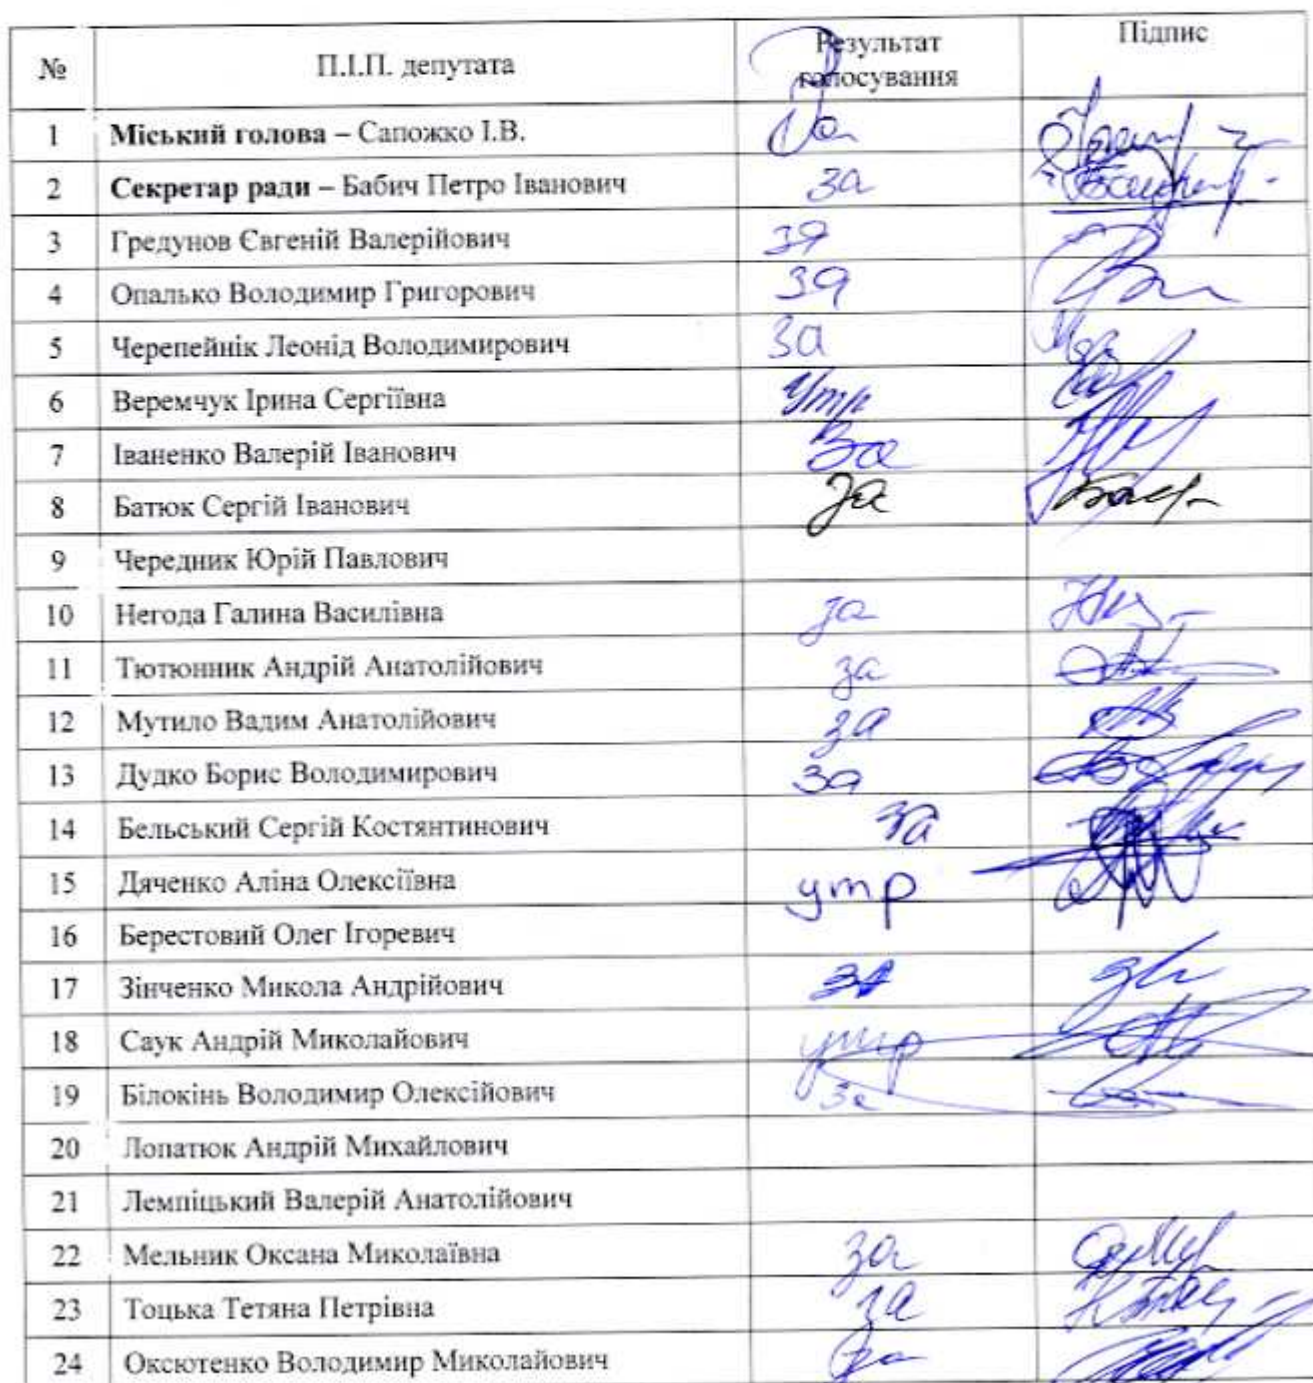 № П.І.П. депутата Результат голосування Підпис
1 Міський голова – Сапожко І.В. За
2 Секретар ради – Бабич Петро Іванович за
3 Гредунов Євгеній Валерійович за
4 Опалько Володимир Григорович за
5 Черепейнік Леонід Володимирович за
6 Веремчук Ірина Сергіївна Утр
7 Іваненко Валерій Іванович За
8 Батюк Сергій Іванович за
9 Чередник Юрій Павлович
10 Негода Галина Василівна за
11 Тютюнник Андрій Анатолійович за
12 Мутило Вадим Анатолійович за
13 Дудко Борис Володимирович за
14 Бельський Сергій Костянтинович за
15 Дяченко Аліна Олексіївна утр
16 Берестовий Олег Ігоревич
17 Зінченко Микола Андрійович за
18 Саук Андрій Миколайович утр
19 Білокінь Володимир Олексійович за
20 Лопатюк Андрій Михайлович
21 Лемпіцький Валерій Анатолійович
22 Мельник Оксана Миколаївна за
23 Тоцька Тетяна Петрівна за
24 Оксютенко Володимир Миколайович за